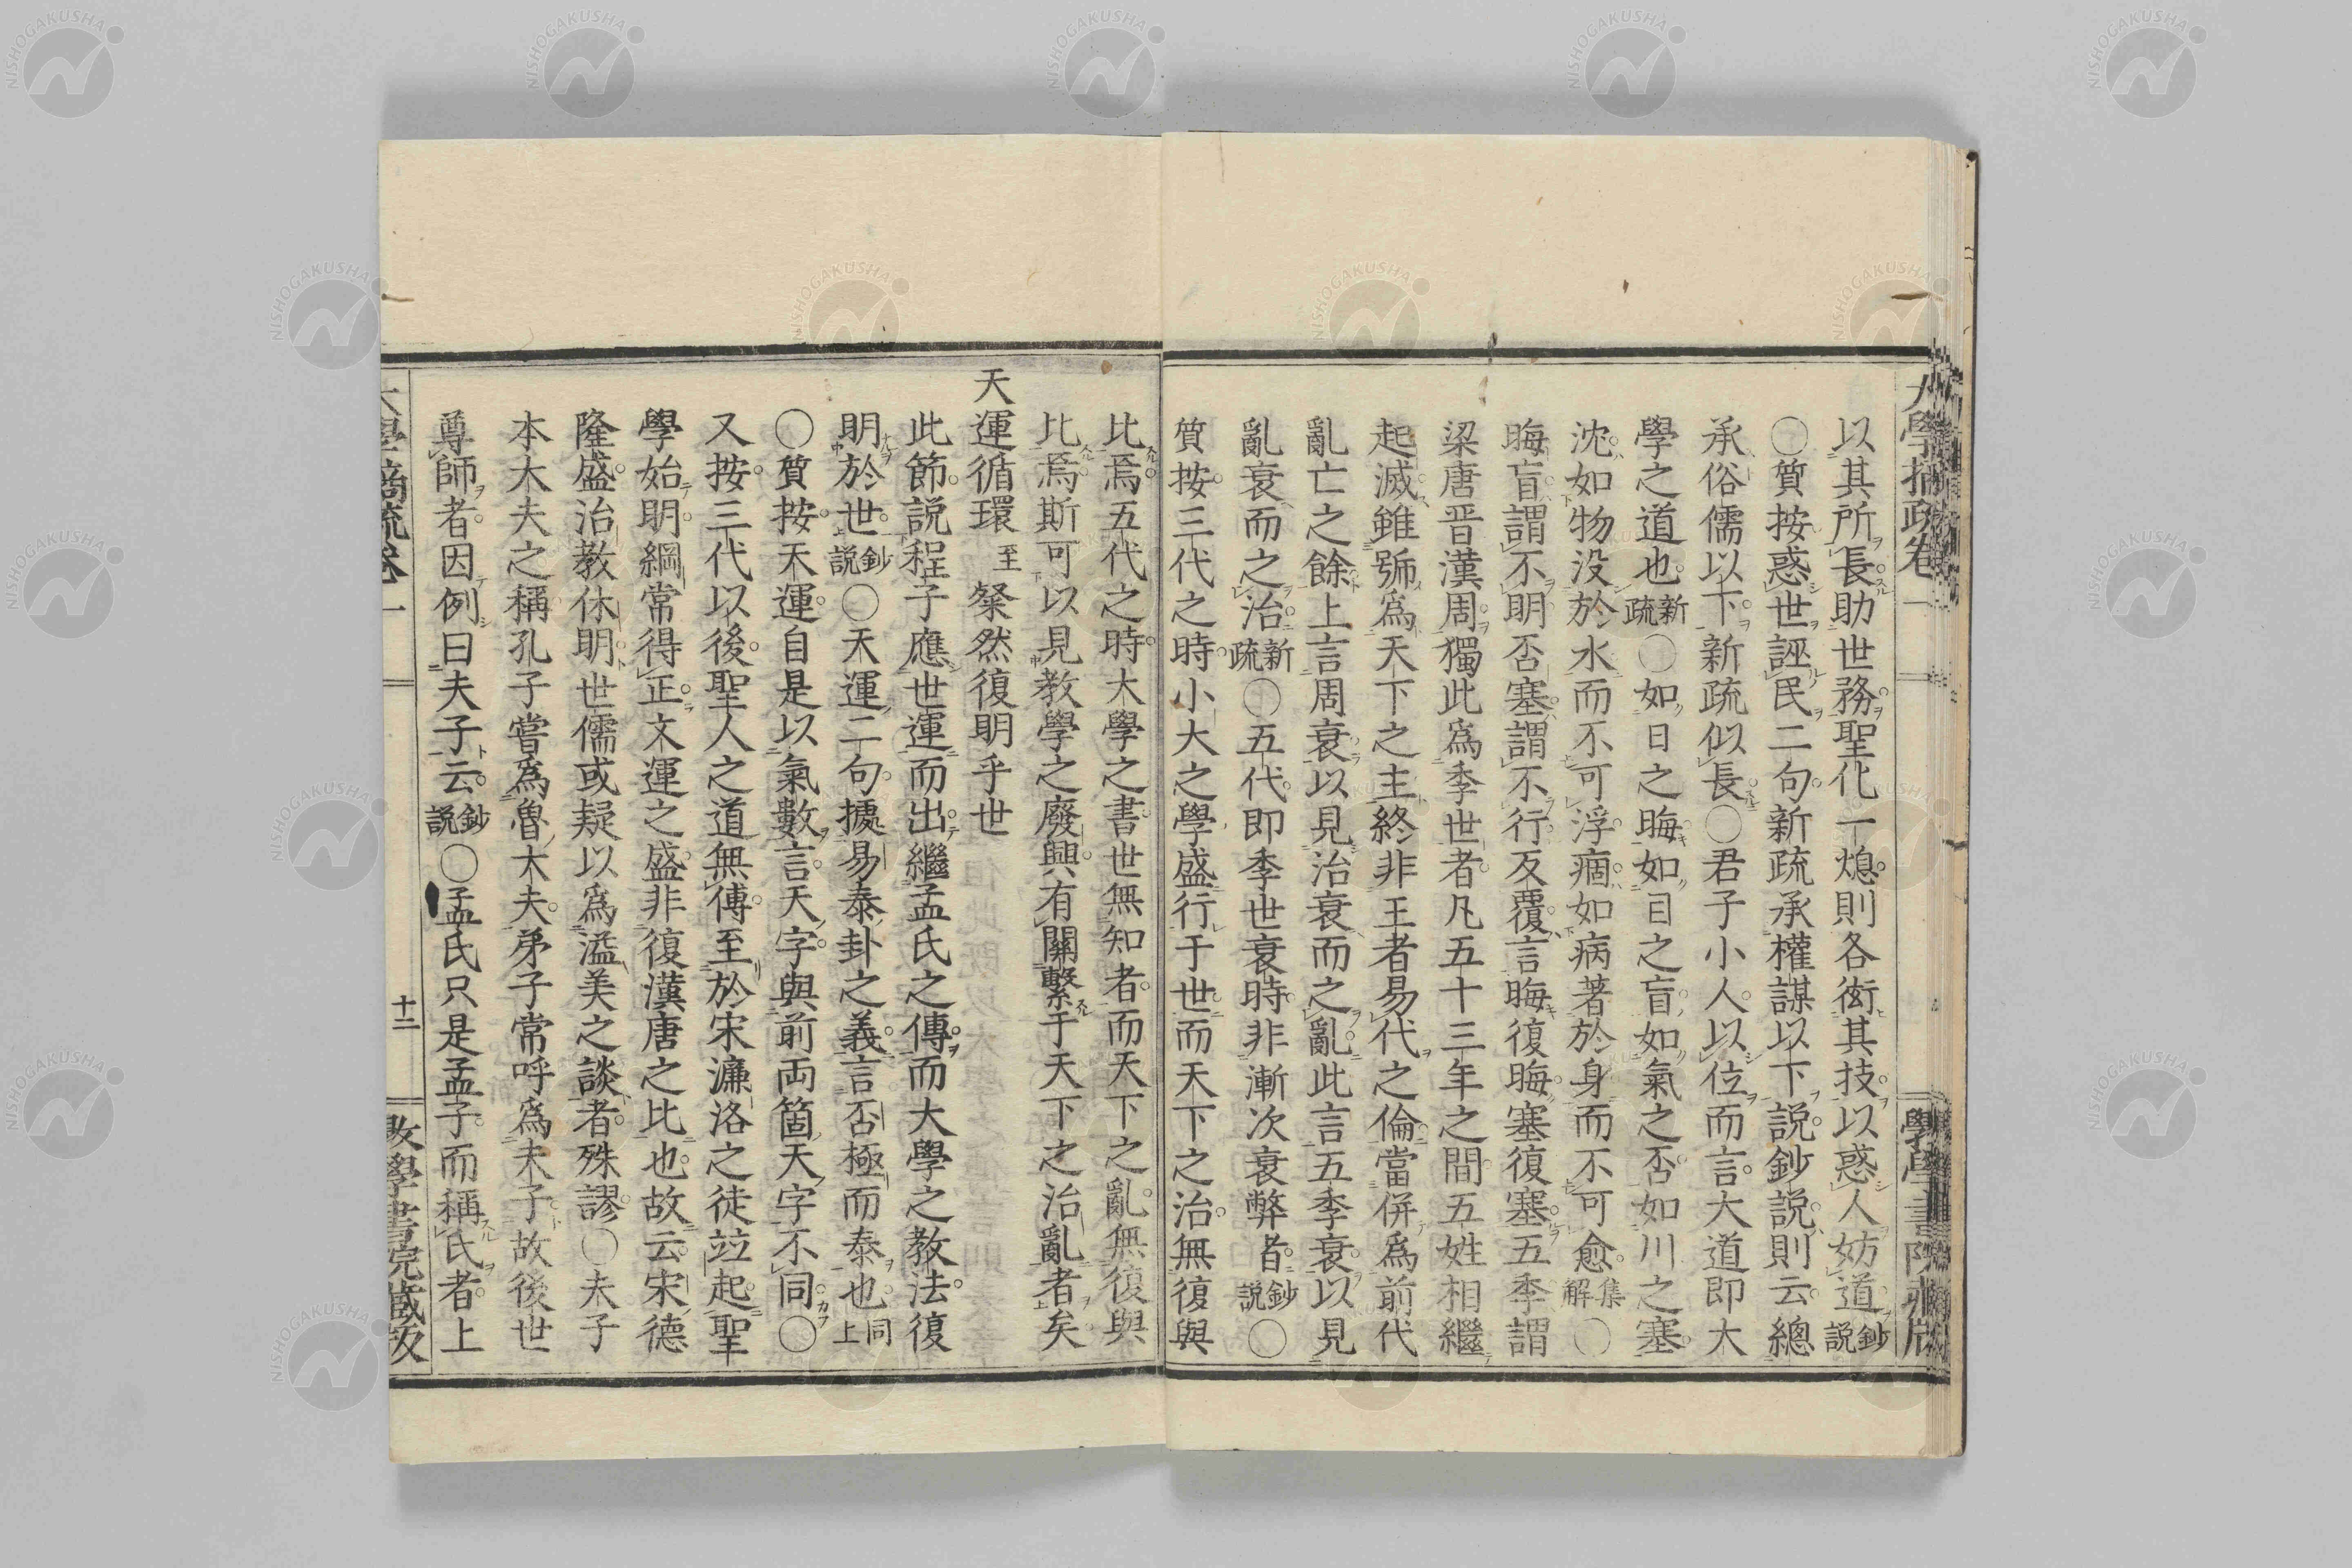 以其所長助世務聖化一熄則各衒其技以惑人妨道鈔説
〇質按惑世誣民二句新疏承權謀以下説鈔説則云總
承俗儒以下新疏似長〇君子小人以位而言大道即大
學之道也新疏〇如日之晦如目之盲如氣之否如川之塞
沈如物没於水而不可浮痼如病著於身而不可愈集解〇
晦盲謂不明否塞謂不行反覆言晦復晦塞復塞五季謂
梁唐晋漢周獨此爲季世者凡五十三年之間五姓相繼
起滅雖號爲天下之主終非王者易代之倫當併爲前代
亂亡之餘上言周衰以見治衰而之亂此言五季衰以見
亂衰而之治新疏〇五代即季世衰時非漸次衰弊者鈔説〇
質按三代之時小大之學盛行于世而天下之治無復與
比焉五代之時大學之書世無知者而天下之亂無復與
比焉斯可以見教學之廢興有關繫于天下之治亂者矣
天運循環至粲然復明乎世
此節説程子應世運而出繼孟氏之傳而大學之教法復
明於世鈔説〇天運二句據易泰卦之義言否極而泰也同上
〇質按天運自是以氣數言天字與前兩箇天字不同〇
又按三代以後聖人之道無傳至於宋濂洛之徒竝起聖
學始明綱常得正文運之盛非復漢唐之比也故云宋德
隆盛治教休明世儒或疑以爲溢美之談者殊謬〇夫子
本大夫之稱孔子嘗爲魯大夫弟子常呼爲夫子故後世
尊師者因例曰夫子云鈔説〇孟氏只是孟子而稱氏者上
大學摘疏卷一
十二
敩學書院藏版